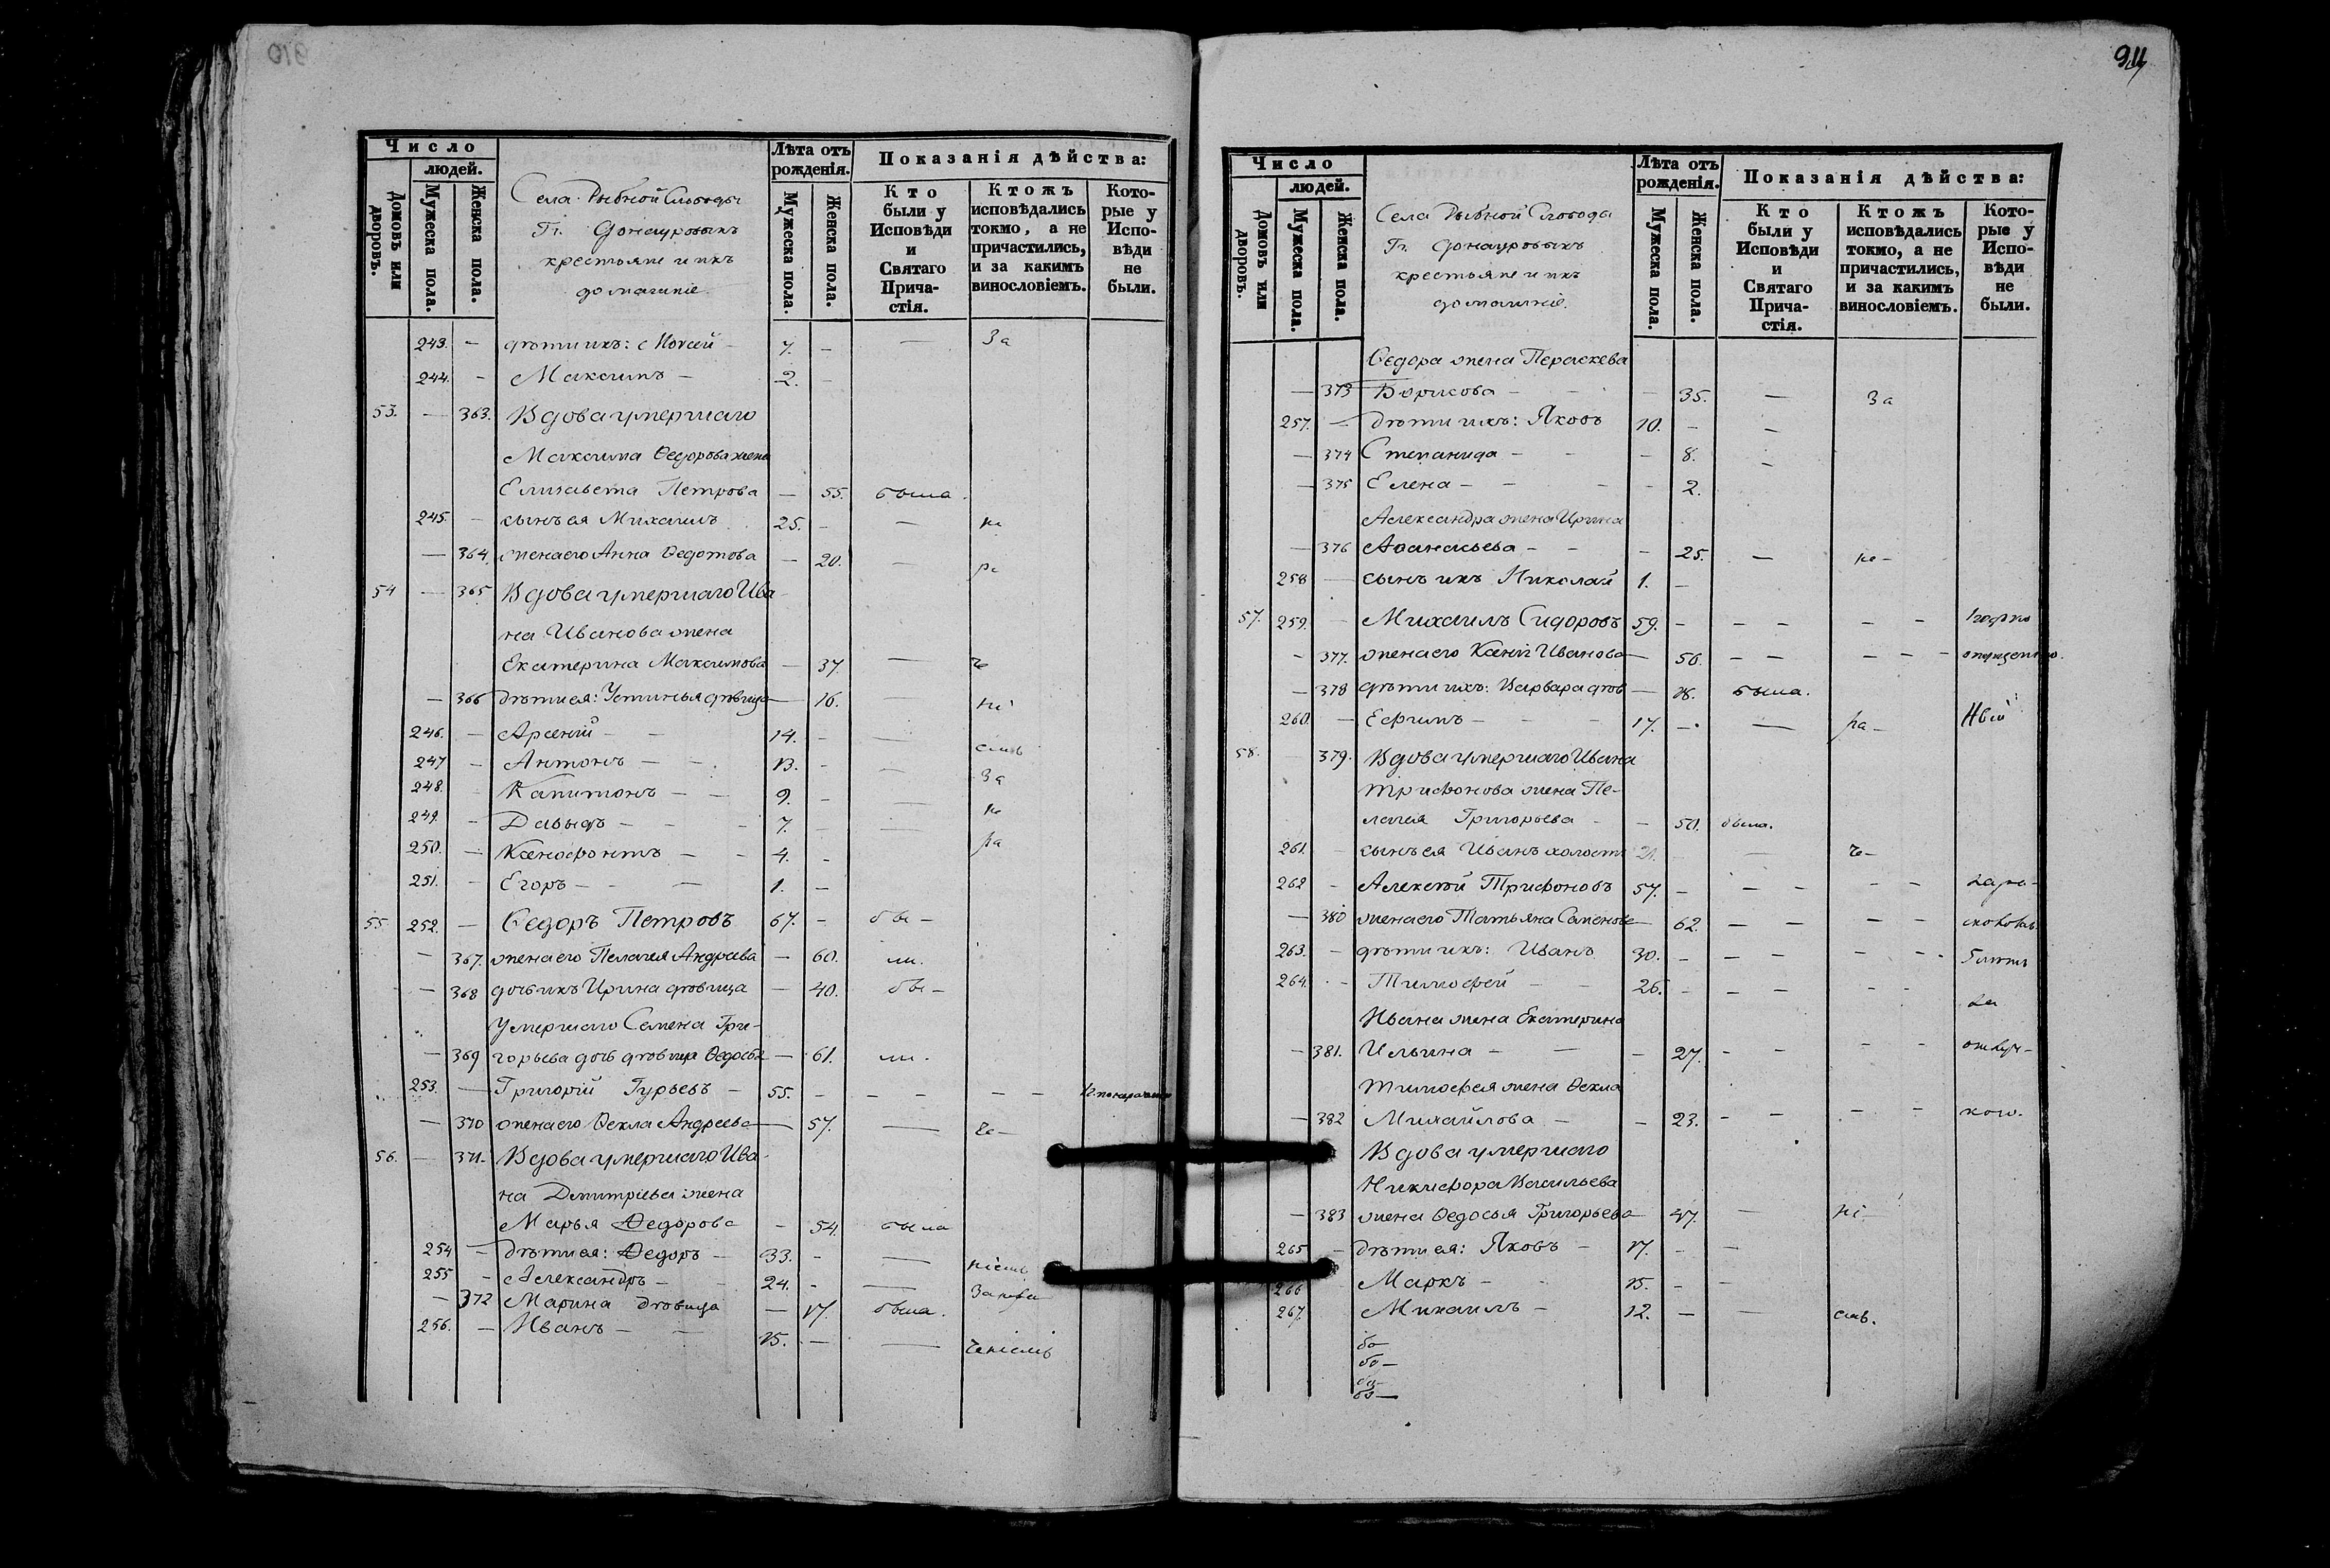 910
Число
людей.
Домовъ или дворовъ.
Мужеска пола.
Женска пола.
Села Рыбной Слободы
Гг. Донауровыхъ
крестьяне и ихъ
домашніе.
Лѣта отъ рожденія.
Мужеска пола.
Женска пола.
Показанія дѣйства:
Кто были у Исповѣди и Святаго Причастія.
Ктожъ исповѣдались токмо, а не причастились, и за какимъ винословіемъ.
Которые у Исповѣди не были.
243. — дѣти ихъ: Моѵсей — 7. — — За
244. — Максимъ — 2. —
53. — 363. Вдова умершаго
Максима Ѳедорова жена
Елизавета Петрова — 55. была.
245. — сынъ ея Михаилъ 25. — —
— 364. жена его Анна Ѳедотова — 20. —
54 — 365 Вдова умершаго Ива-
на Иванова жена
Екатерина Максимова — 37. —
— 366 дѣти ея: Устинья дѣвица — 16.
246. — Арсеній — 14. — —
247 — Антонъ — — 13. — — За
248. Капитонъ — — 9. — —
249. — Давыдъ — — — 7. — —
250. — Ксенофонтъ — — 4. —
251. — Егоръ — — — 1. —
55 252. — Ѳедоръ Петровъ 67. — бы —
— 367. жена его Пелагея Андреева — 60. ли.
— 368 дочь ихъ Ирина дѣвица — 40. бы —
Умершаго Семена Гри-
— 369 горьева дочь дѣвица Ѳедосья — 61. ли.
253. — Григорій Гурьевъ — 55. — — — — —
— 370 жена его Ѳекла Андреева — 57. —
56. — 371. Вдова умершаго Ива-
на Дмитріева жена
Марья Ѳедорова — 54. была
254 — дѣти ея: Ѳедоръ — 33. — —
255 — Александръ — 24. — —
— 372 Марина дѣвица — 17. была.
256. — Иванъ — — 15. — —
911
Число
людей.
Домовъ или дворовъ.
Мужеска пола.
Женска пола.
Села Рыбной Слободы
Гг. Донауровыхъ
крестьяне и ихъ
домашніе.
Лѣта отъ рожденія.
Мужеска пола.
Женска пола.
Показанія дѣйства:
Кто были у Исповѣди и Святаго Причастія.
Ктожъ исповѣдались токмо, а не причастились, и за какимъ винословіемъ.
Которые у Исповѣди не были.
Ѳедора жена Параскева
— 373 Борисова — — 35. — За
257. — дѣти ихъ: Яковъ 10. — —
— 374 Степанида — — — 8. —
— 375 Елена — — — 2.
Александра жена Ирина
— 376 Аѳанасьева — — — 25. —
258 — сынъ ихъ Николай 1. —
57. 259. — Михаилъ Сидоровъ 59. — — — — —
— 377. жена его Ксенія Иванова — 56. — — — — —
— 378 дѣти ихъ: Варвара дѣв — 18. была.
260. — Ефимъ — — — 17. — —
58. 379. Вдова умершаго Ивана
Трифонова жена Пе-
лагея Григорьева — — 50. была.
261. — сынъ ея Иванъ холостъ 21. — —
262 — Алексѣй Трифоновъ 57. — — — — —
— 380 жена его Татьяна Семенова — 62. — — — —
263. — дѣти ихъ: Иванъ 30. — — — — —
264. — Тимофей — — 26. — — — — —
Ивана жена Екатерина
— 381. Ильина — — — 27. — — — —
Тимофея жена Ѳекла
— 382 Михайлова — — 23. — — — —
Вдова умершаго
Никифора Васильева
— 383 жена Ѳедосья Григорьева — 47. —
265 — дѣти ея: Яковъ — 17. — —
266 Маркъ — 15. — —
267. Михаилъ — 12. — —